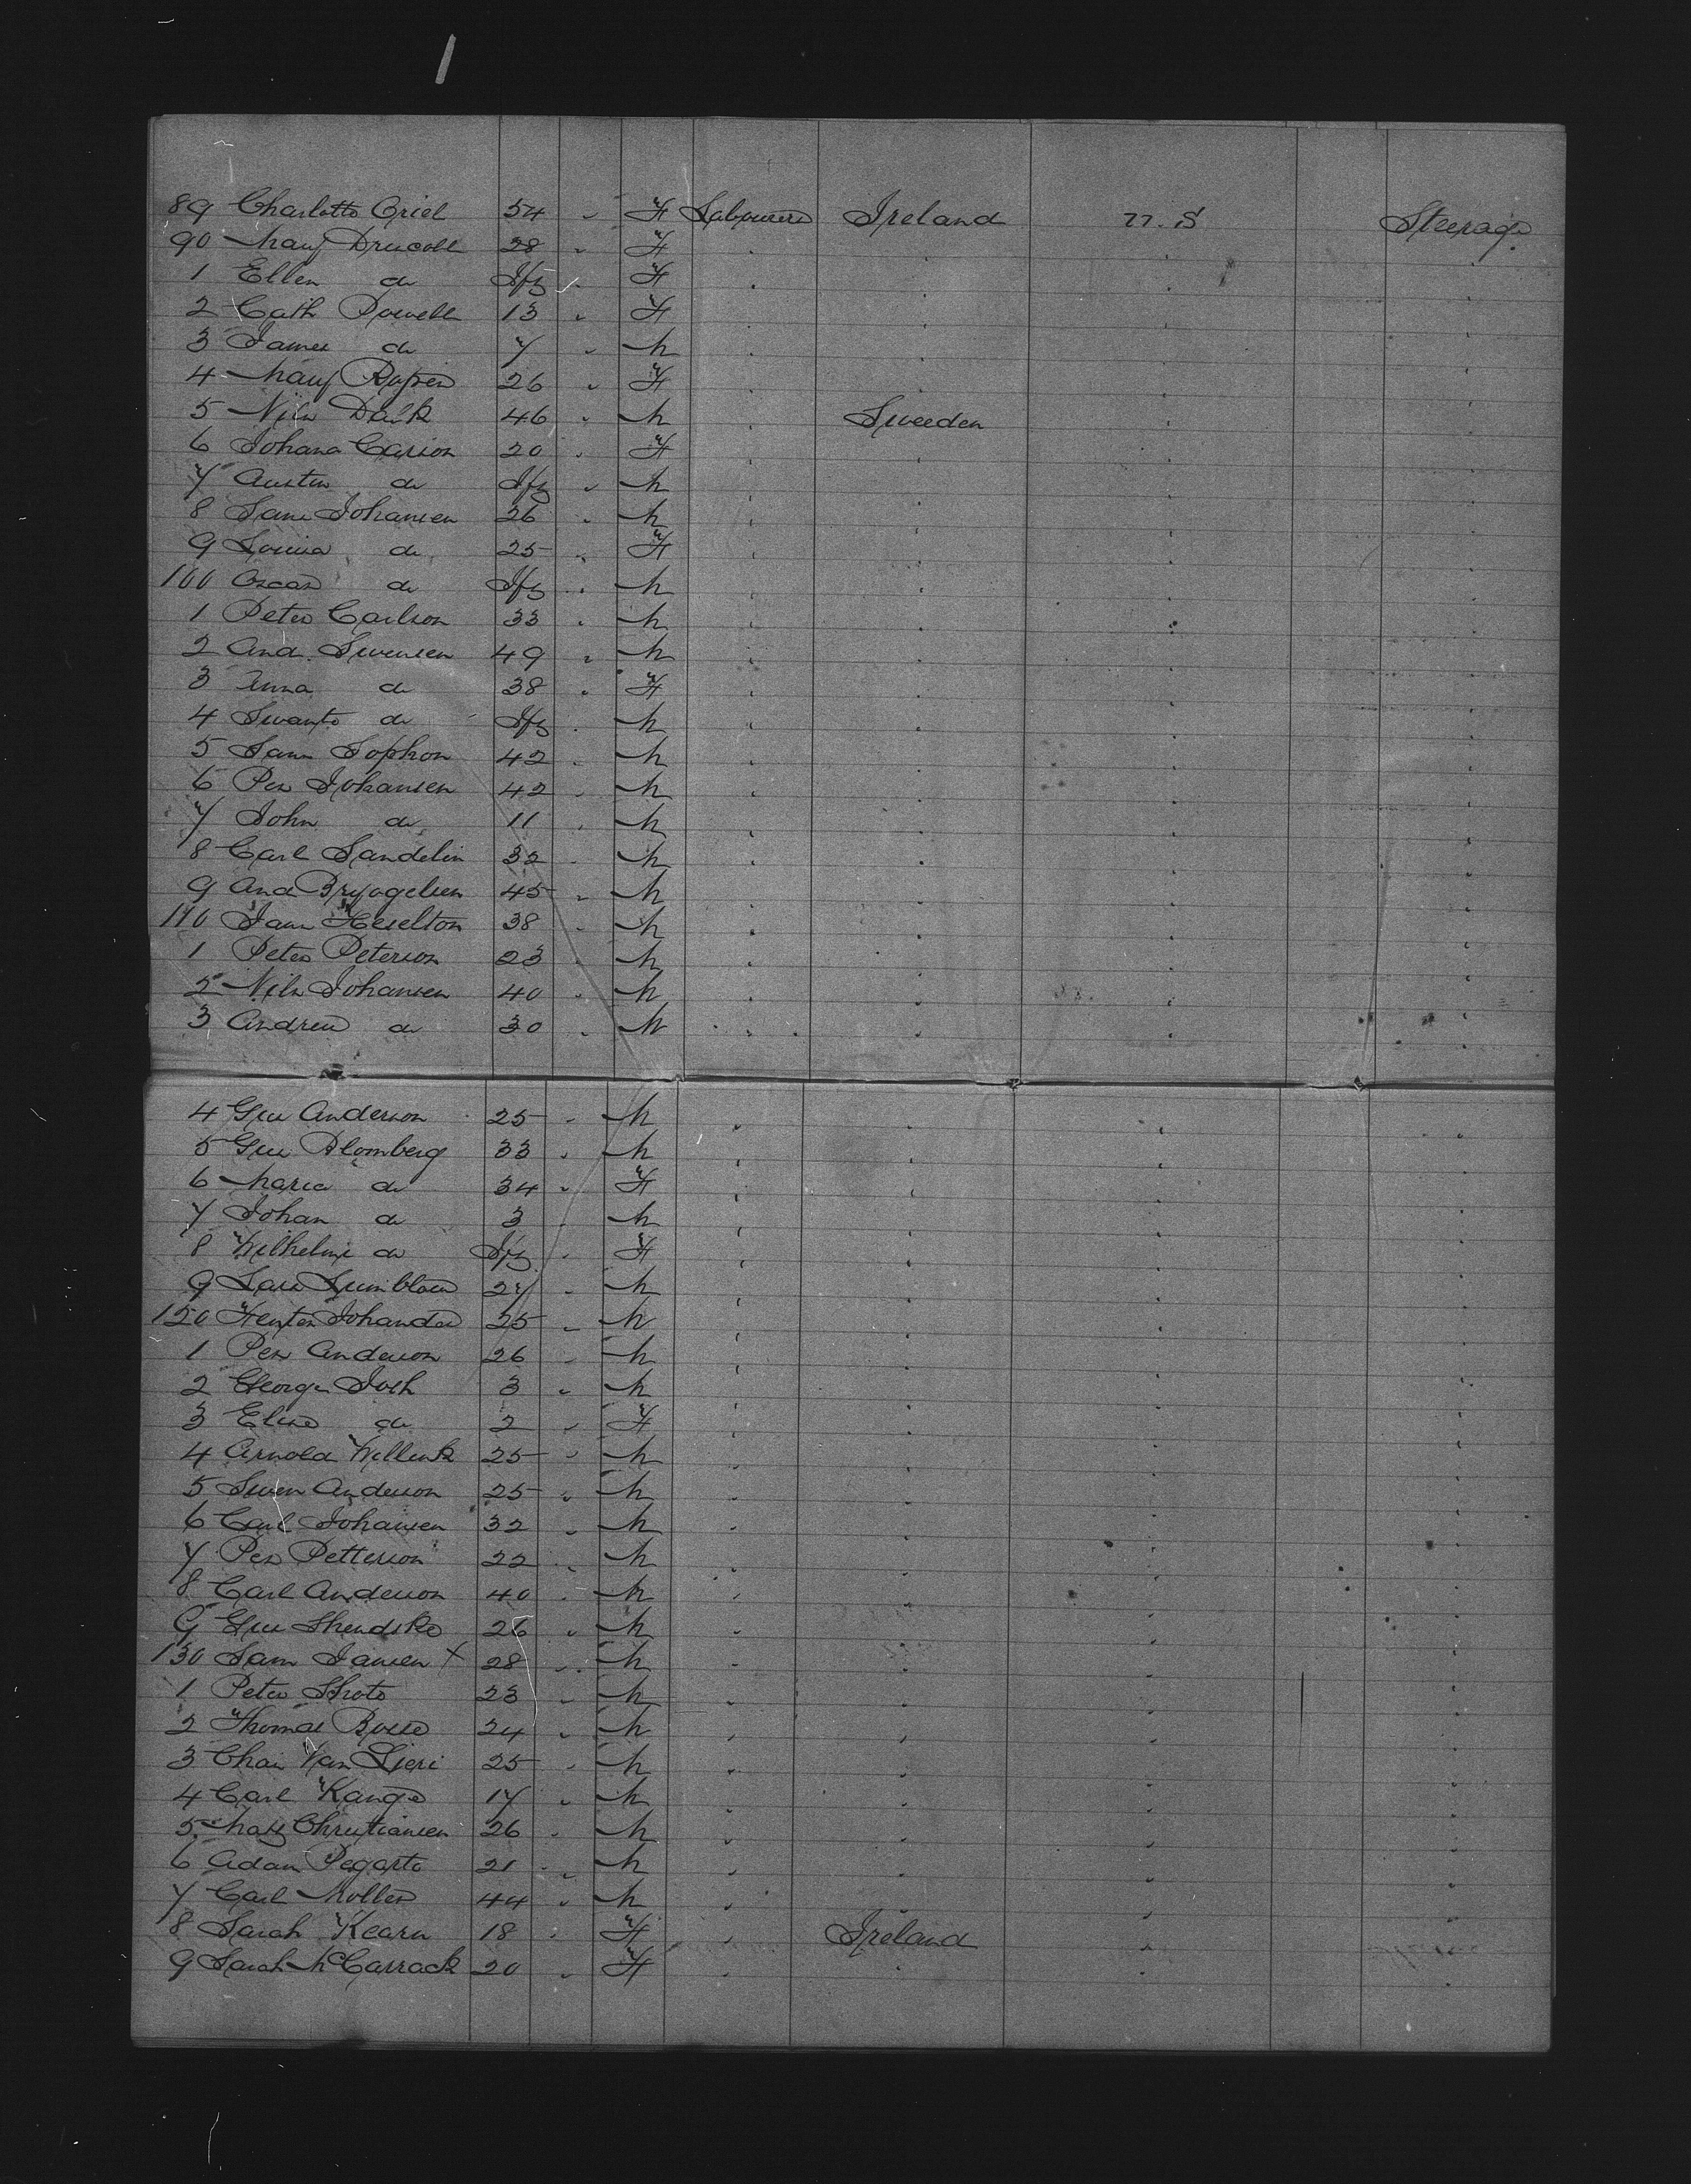 89 Charlotte Criel 54 " F Labourers Ireland U.S Steerage
90 Mary Driscoll 28 " F
1 Ellen do Inf " F
2 Cath Powell 13 " F
3 James do 7 " M
4 Mary 26 " F
5 Nils Dalk 46 " M Sweeden
6 Johana Carson 20 " F
7 Austin do Inf " M
8 Johansen 26 " M
9 Louisa do 25 " F
100 Oscar do Inf " M
1 Peter Carlson 33 " M
2 And. Swensen 49 " M
3 Anna do 38 " F
4 Swante do Inf " M
5 Sophon 42 " M
6 Per Johansen 42 " M
7 John do 11 " M
8 Carl Sandelin 32 " M
9 And 45 " M
110 Heselton 38 " M
1 Peter Peterson 23 " M
2 Nils Johansen 40 " M
3 Andrew do 30 " M
4 Gus Anderson 25 " M
5 Gus Blomberg 33 " M
6 Maria do 34 " F
7 Johan do 3 " M
8 Wilhelmi do Inf " F
9 Lars 27 " M
120 25 " M
1 Per Anderson 26 " M
2 George 3 " M
3 Elise do 2 " F
4 Arnold Willink 25 " M
5 Swen Anderson 25 " M
6 Carl Johansen 32 " M
7 Per Petterson 22 " M
8 Carl Anderson 40 " M
9 Gus 26 " M
130 Sam Jansen X 28 " M
1 Peter 23 " M
2 Thomas 24 " M
3 Chas Van 25 " M
4 Carl Kange 17 " M
5 Matz Christiansen 26 " M
6 Adam Pegarte 21 " M
7 Carl Moller 44 " M
8 Sarah Kearn 18 " F Ireland
9 Sarah McCarrack 20 " F